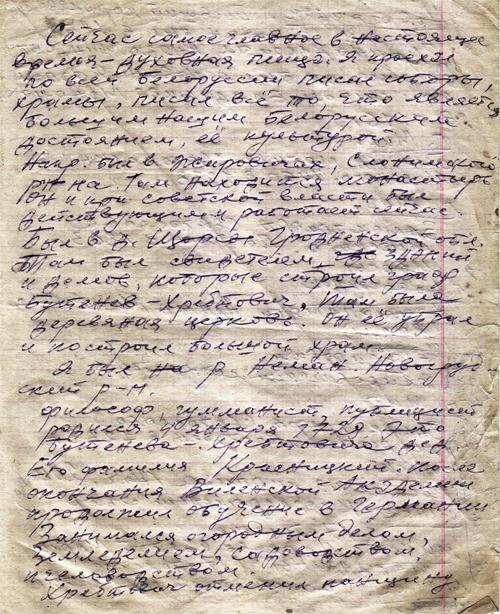 Сейчас самое главное в настоящее
время – духовная пища. Я проехал
по всей Белоруссии писал соборы,
храмы, писал всё то, что является
большим нашим Белорусским
достоянием, её культурой.
Напр. был в Жировичах, Слонимского
р-на. Там находится монастырь
Он и при советской власти был
действующим и работает сейчас.
Был в д. Щорсы Гродненской обл.
Там был свидетелем, где зданий
и домов, которые строил граф
Бутенев-Хребтович, Там была
деревяная церковь. Он её убрал
и построил большой храм.
Я был на р. Неман. Новогруд
ский р-н.
философ, гумманист, публицист
родился 4 января 1729 Это
Бутенева-Хребтовича дед
Его фамилия Красницкий. После
окончания Виленской Академии
продолжил обучение в Германии
Занимался огородным делом,
земледелием, садоводством,
пчеловодством.
Хребтович отменил панщину